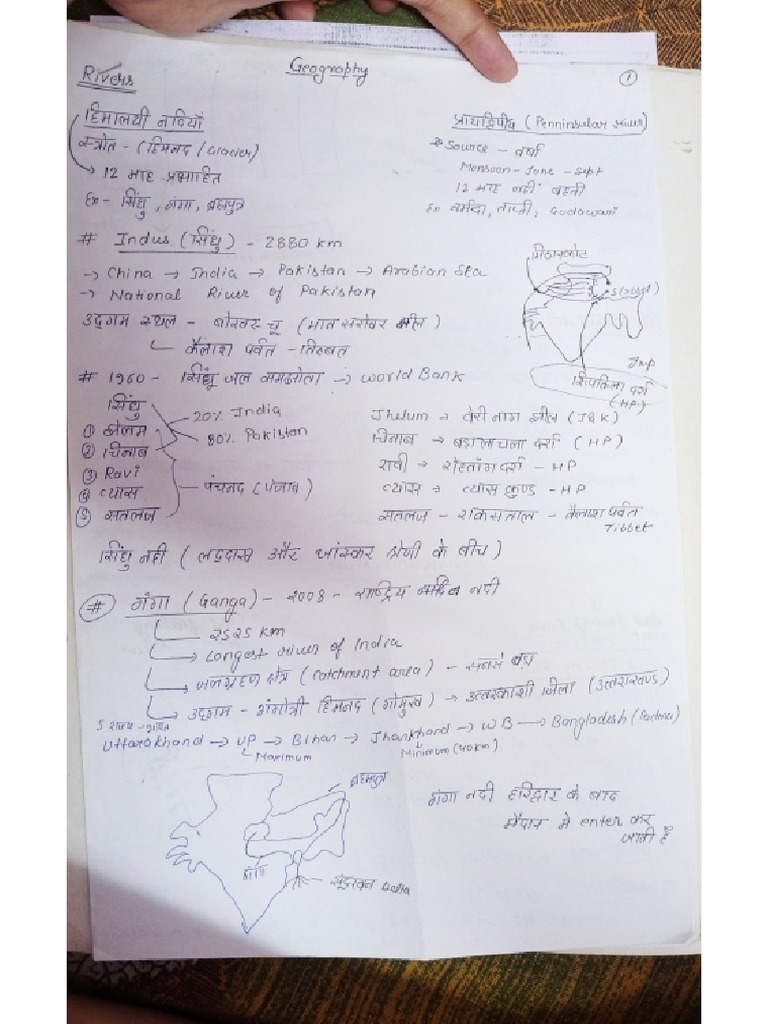 Geography
①
Rivers
हिमालयी नदियाँ
स्त्रोत - (हिमनद / Glacier)
→ 12 माह प्रवाहित
Ex - सिंधु, गंगा, ब्रह्मपुत्र
प्रायद्वीपीय (Penninsular river)
→ Source - वर्षा
Monsoon - June - Sept
12 माह नहीं बहती
Ex नर्मदा, ताप्ती, Godawari
# Indus (सिंधु) - 2880 km
→ China → India → Pakistan → Arabian Sea
→ National River of Pakistan
उदगम स्थल - बोखर चू (मानसरोवर झील)
कैलाश पर्वत - तिब्बत
मिठानकोट
Imp
शिपकिला दर्रा
(HP)
# 1960 - सिंधू जल समझोता → World Bank
सिंधु
20% India
80% Pakistan
① झेलम
② चिनाब
③ Ravi
④ व्यास
⑤ सतलज
पंचनद (पंजाब)
Jhelum → वेरीनाग झील (J&K)
चिनाब → बड़ालाचला दर्रा (HP)
रावी → रोहतांग दर्रा - HP
व्यास → व्यास कुण्ड - HP
सतलज - राकसताल - कैलाश पर्वत
Tibbet
सिंधु नदी ( लद्दाख और जांस्कर श्रेणी के बीच )
# गंगा (Ganga) - 2008 - राष्ट्रिय नदी
2525 km
→ Longest river of India
→ जलग्रहण क्षेत्र (Catchment area) - सबसे बड़ा
→ उदगम - गंगोत्री हिमनद (गोमुख) → उत्तरकाशी जिला (उत्तराखण्ड)
5 राज्य
Uttarakhand → UP → Bihar → Jharkhand → WB → Bangladesh (Padma)
Maximum
Minimum (40km)
ब्रह्मपुत्र
गंगा
सुंदरवन Delta
गंगा नदी हरिद्वार के बाद
मैदान में enter कर
जाती है